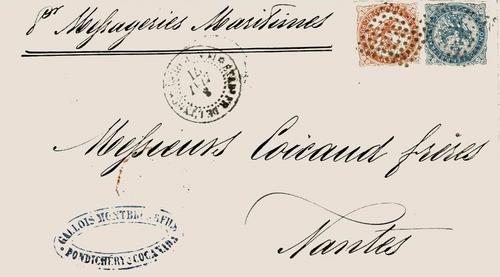 per Messageries Maritimes
ETABT FR. DE L'INDE
Messieurs Coicaud frères
Nantes
GALLOIS MONTBRUN & FILS
PONDICHERY & COCANADA